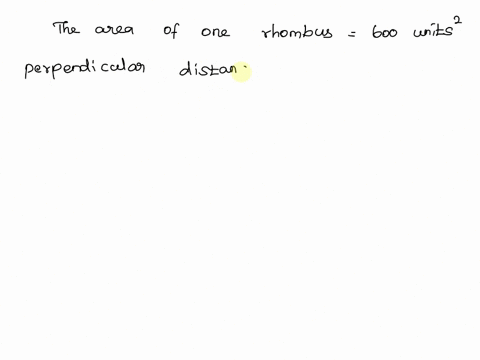 The area of one rhombus = 600 units²
perpendicular distan